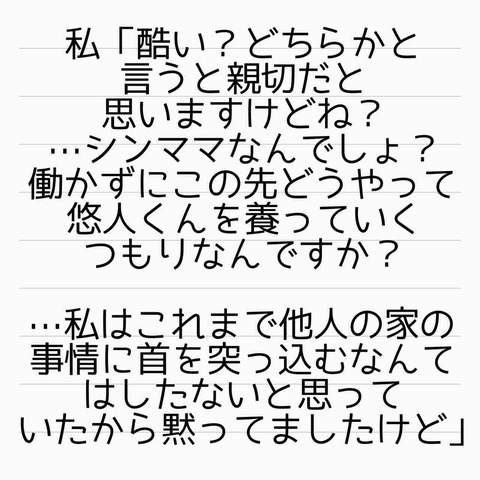 私「酷い？どちらかと
言うと親切だと
思いますけどね？
…シンママなんでしょ？
働かずにこの先どうやって
悠人くんを養っていく
つもりなんですか？
…私はこれまで他人の家の
事情に首を突っ込むなんて
はしたないと思って
いたから黙ってましたけど」